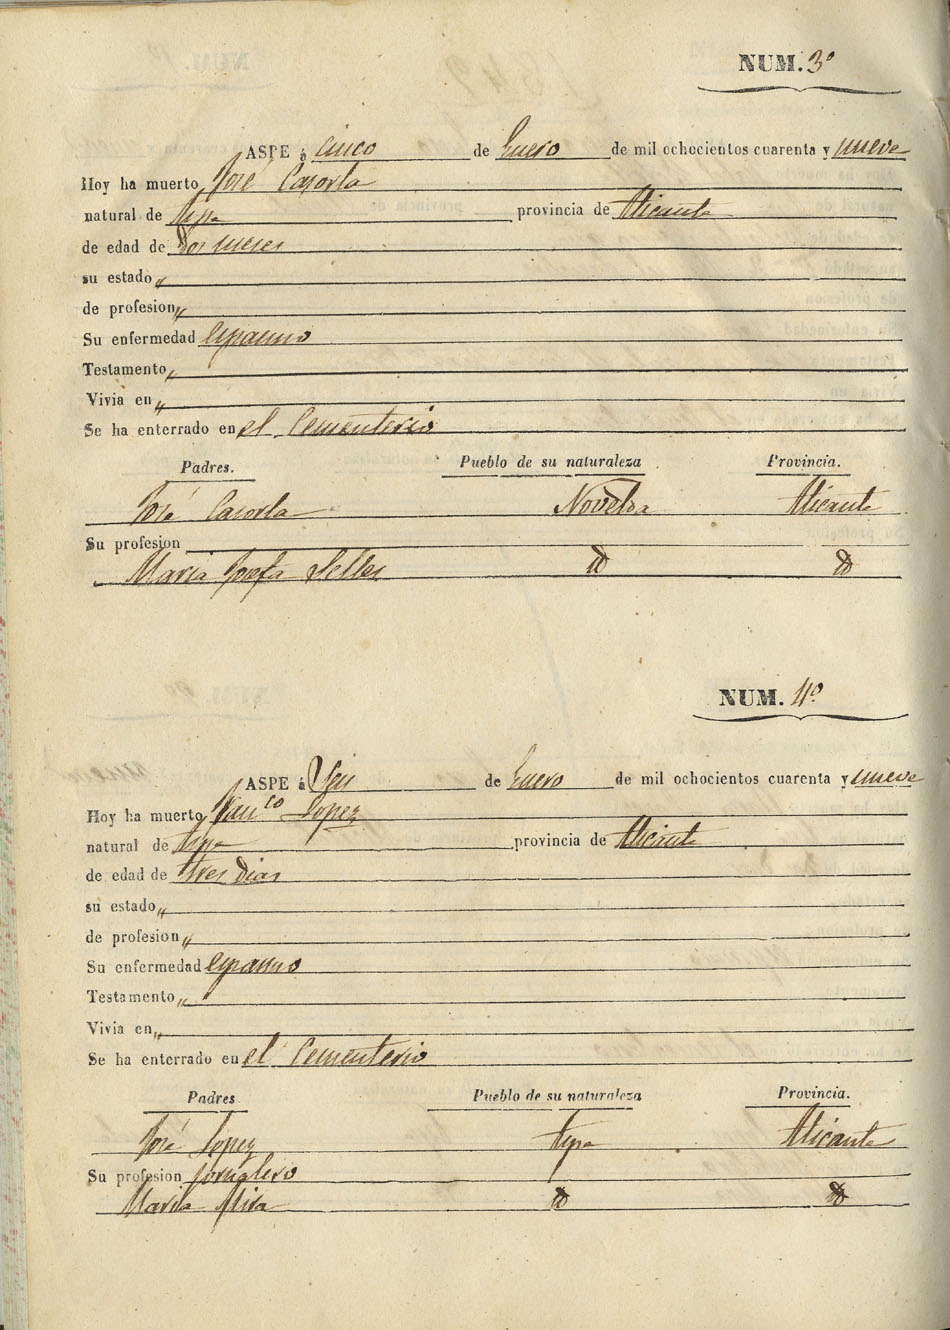 NUM. 3º
ASPE á cinco de Enero de mil ochocientos cuarenta y nueve
Hoy ha muerto José Casorla
natural de Aspe provincia de Alicante
de edad de dos meses
su estado „
de profesion „
Su enfermedad espasmo
Testamento „
Vivia en „
Se ha enterrado en el Cementerio
Padres. Pueblo de su naturaleza Provincia.
José Casorla Novelda Alicante
Su profesion
Maria Josefa Selles id id
NUM. 4º
ASPE á Seis de Enero de mil ochocientos cuarenta y nueve
Hoy ha muerto Franco Lopez
natural de Aspe provincia de Alicante
de edad de tres dias
su estado „
de profesion „
Su enfermedad espasmo
Testamento „
Vivia en „
Se ha enterrado en el Cementerio
Padres Pueblo de su naturaleza Provincia.
José Lopez Aspe Alicante
Su profesion jornalero
Maria Mira id id